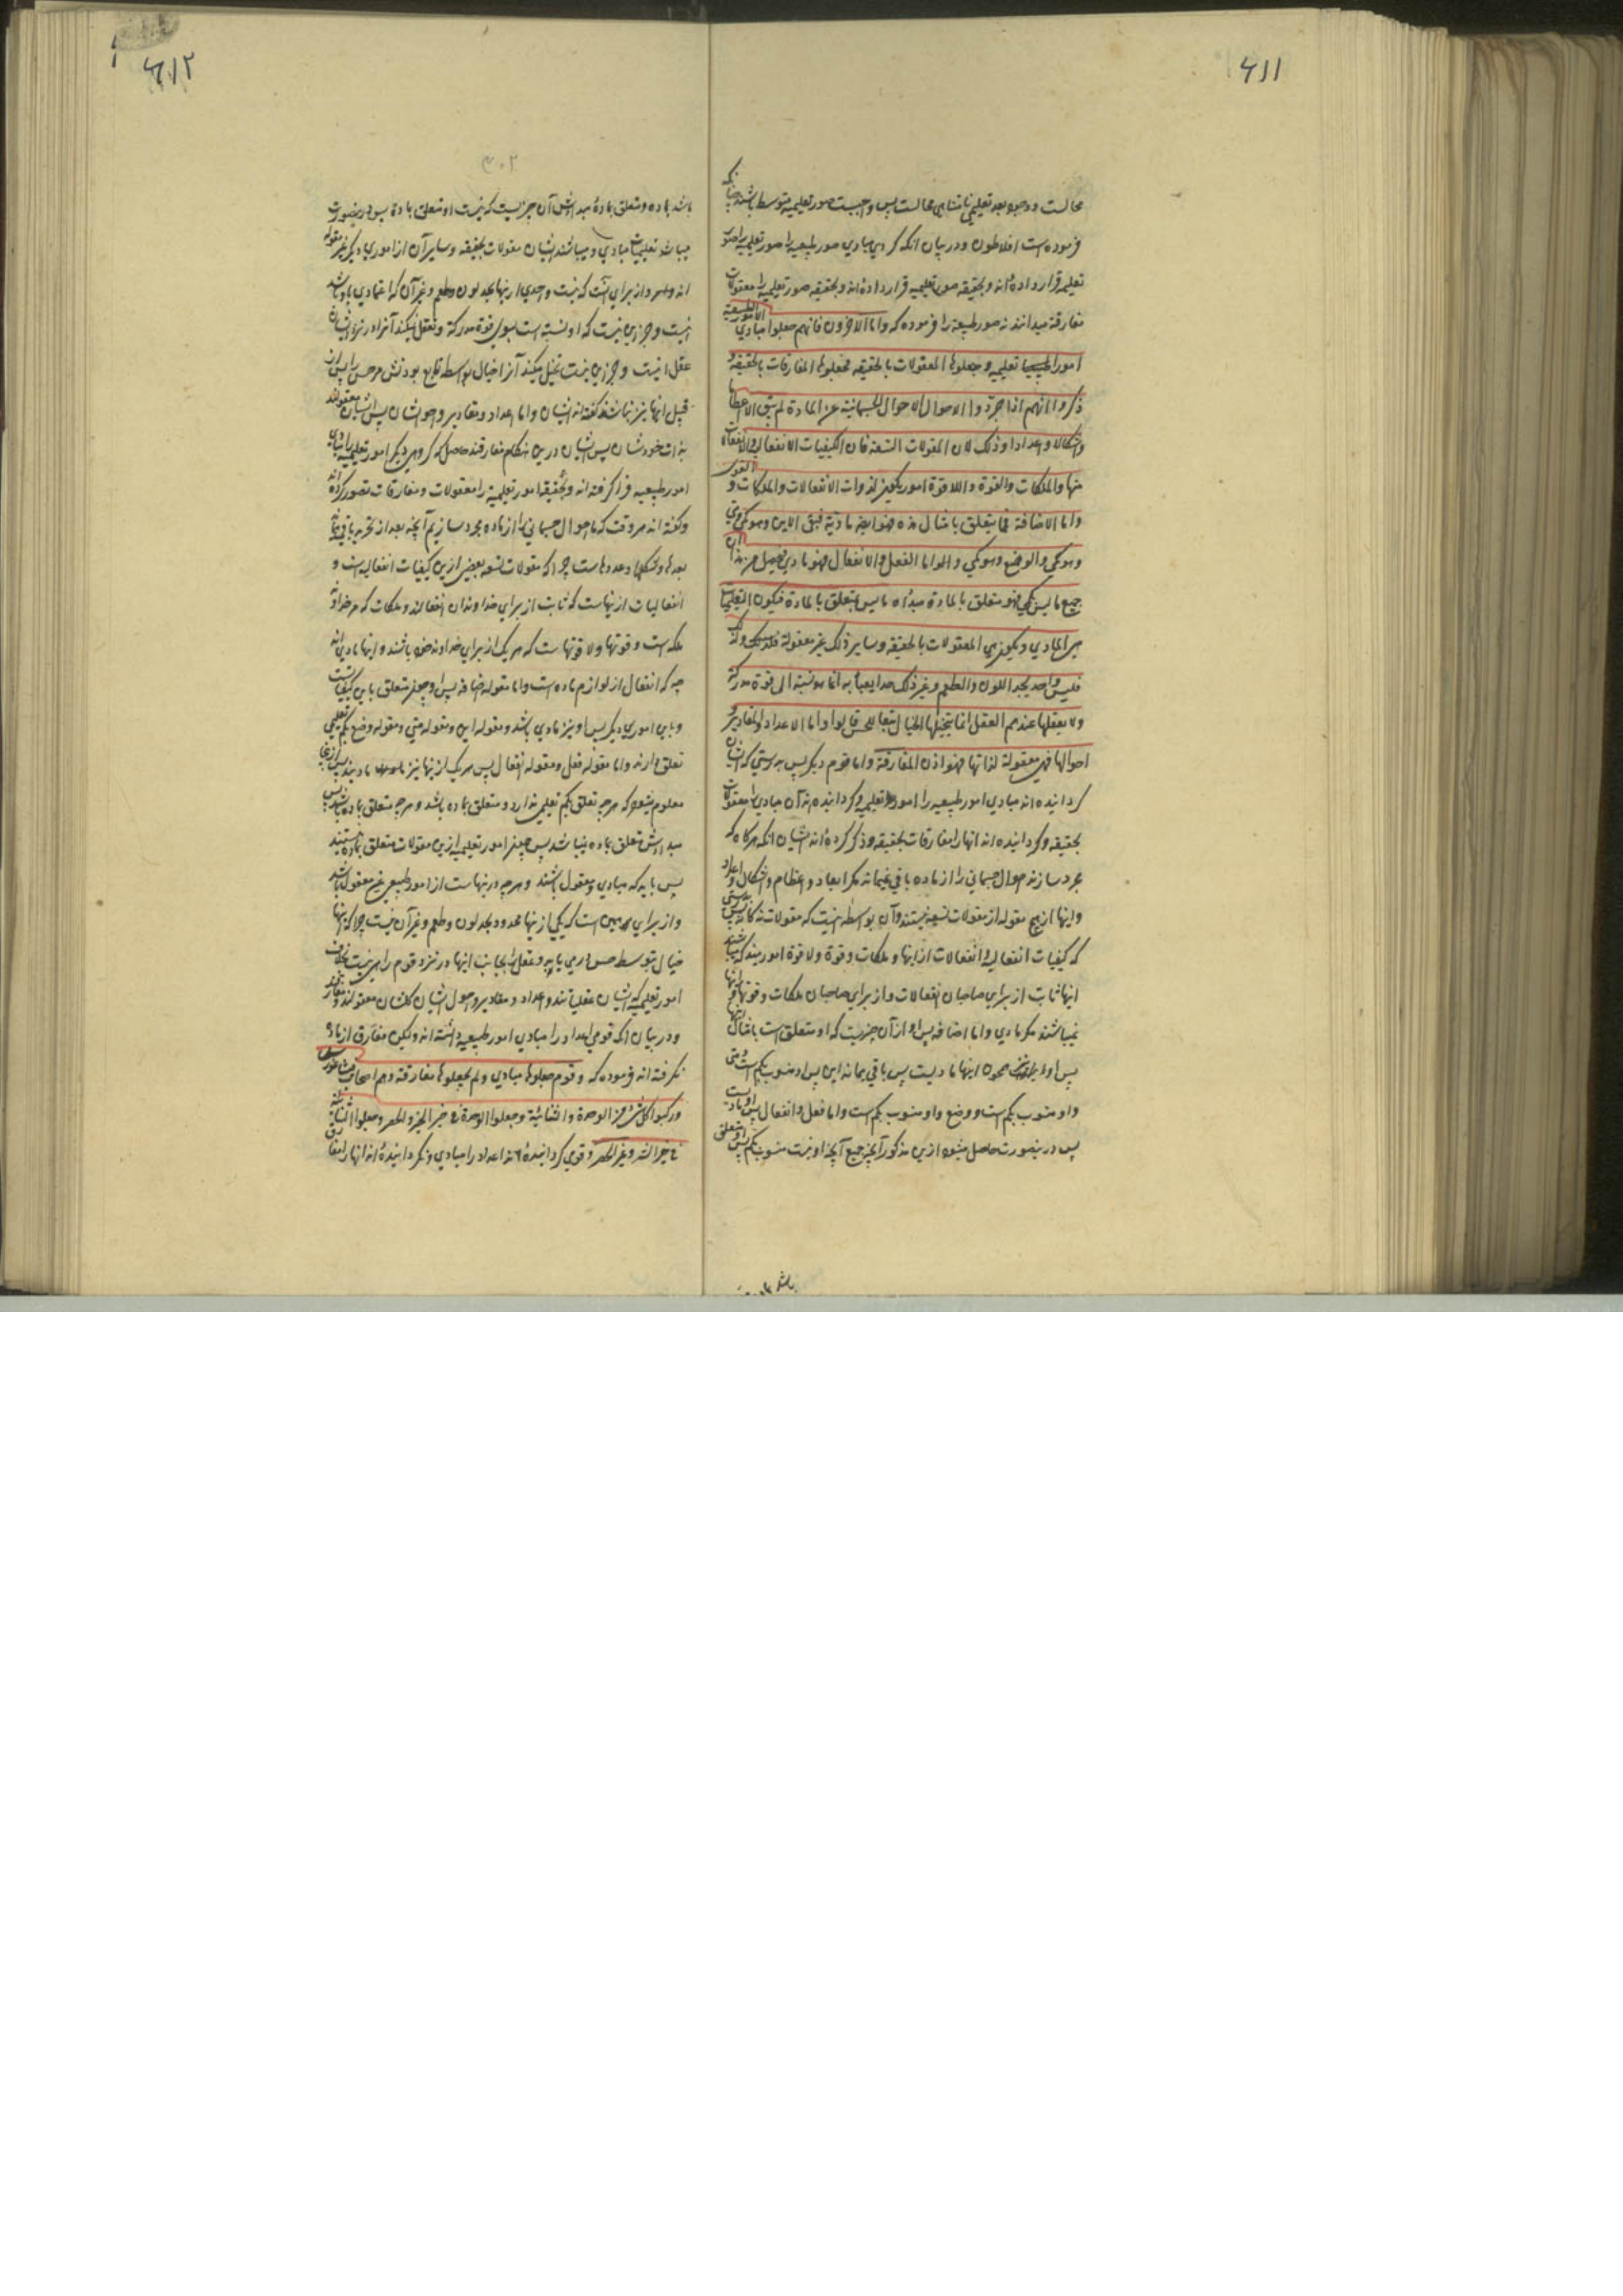 ۶۱۱
محالست و وجود بعد تعلیمی نامتناهی محالست پس واجبست صور تعلیمیه متوسط باشند چنانکه
فرموده است افلاطون و در بیان آنکه گروهی مبادی صور طبیعیه را صور تعلیمیه را صور
تعلیمیه قرار داده‌اند و بحقیقه صور تعلیمیه قرار داده‌اند و بحقیقه صور تعلیمیه را معقولات
مفارقه میدانند نه صور طبیعیه را فرموده که واما الآخرون فانهم جعلوا مبادی الامور الطبیعیة
امورا تعلیمیه وجعلوها المعقولات بالحقیقه فجعلوها المفارقات بالحقیقه و
ذکروا انهم اذا جردوا الاحوال الجسمانیة عن المادة لم یبق الا اعظاما
واشکالا واعدادا وذلک لان المقولات التسعة فان الکیفیات الانفعالیه والانفعالات
منها والملکات والقوة واللاقوة امور یکون لذوات الانفعالات والملکات و القوی
واما الاضافة فما یتعلق بامثال هذه فهو ایضا مادیة فبقی الاین وهو کمی ومتی
وهو کمی والوضع وهو کمی واما الفعل والانفعال فهو مادی فیحصل من هذا ان
جمیع ما لیس بکمی فهو متعلق بالمادة مبدأه ما لیس یتعلق بالمادة فیکون التعلیمیات
هی المبادی ویکون هی المعقولات بالحقیقه وسایر ذلک غیر معقولة ولذلک
فلیس واحد یحد اللون والطعم وغیر ذلک حدا یعبأ به انما هو نسبة الی قوة مدرکة
ولا یعقلها عندهم العقل انما یتخیلها الخیال تبعا للحس قالوا واما الاعداد والمقادیر و
احوالها فهی معقولة لذاتها فهو اذن المفارقة واما قوم دیگر پس بدرستی که ایشان
گردانیده‌اند مبادی امور طبیعیه را امور تعلیمیه و گردانیده‌اند آن مبادی را معقولات
بحقیقه و گردانیده‌اند آنها را مفارقات بحقیقه و ذکر کرده‌اند ایشان آنکه هرگاه که
مجرد سازند احوال جسمانی را از ماده باقی نمیماند مگر ابعاد و اعظام و اشکال و اعداد
و اینها از هیچ مقوله از مقولات تسعه نیستند و آن بواسطه اینست که مقولات نه‌گانه بدرستی
که کیفیات انفعالیه و انفعالات از اینها و ملکات و قوة و لا قوة امورند که میباشند
اینها ثابت از برای صاحبان انفعالات و از برای صاحبان ملکات و قوتها و اینها
نمیباشند مگر مادی و اما اضافه پس او از آن چیزیست که او متعلق است بامثال اینها
پس او اینها مادیست پس باقی بماند این پس او منسوب بکم است و متی
و او منسوب بکم است و وضع و او منسوب بکم است و اما فعل و انفعال پس او مادیست
پس درینصورت حاصل میشود ازین مذکور آنکه جمیع آنچه او نیست منسوب بکم پس او متعلق
۶۱۲
۳۰۲
باشد بماده و متعلق بمادة مبدأش آن چیزیست که نیست او متعلق بمادة پس درینصورت
میباشد تعلیمیات مبادی و میباشند ایشان معقولات بحقیقه و سایر آن از اموری دیگر غیر معقوله
اند و از برای آنست که نیست واحدی از اینها بحد لون و طعم و غیر آن که اعتمادی باو باشد
نیست و جز این نیست که او نسبة است بسوی قوة مدرکة و تعقل نمیکند آنرا در نزد ایشان
عقل و جز این نیست تخیل میکند آنرا خیال بواسطه تابع بودنش مر حس را پس از
قبل اینها نیز نباشند گفته‌اند ایشان و اما اعداد و مقادیر و احوال ایشان پس ایشان معقولند
بذات خودشان پس ایشان درین هنگام مفارقند حاصل که گروهی دیگر امور تعلیمیه را مبادی
امور طبیعیه فراگرفته‌اند و بحقیقه امور تعلیمیة را معقولات و مفارقات تصور کرده‌اند
و گفته‌اند هر وقت که ما احوال جسمانی را از ماده مجرد سازیم آنچه بعد از تجرید باقی میماند
بعدها و شکلها و عددهاست چرا که مقولات تسعه بعضی ازین کیفیات انفعالیه است و
انفعالیات از اینهاست که ثابت از برای خداوندان انفعالند و ملکات که هر خداوند
ملکه است و قوتها و لا قوتهاست که هر یک از برای خداوند خود باشند و اینها مادی‌اند
چه که انفعال از لوازم ماده است و اما مقوله اضافه پس او چون متعلق باین کیفیاتست
و باین اموری دیگر پس او نیز مادی باشد و مقوله این و مقوله متی و مقوله وضع بکم تعلیمی
تعلق دارند و اما مقوله فعل و مقوله انفعال پس هر یک از اینها نیز مادیند پس ازینجا
معلوم میشود که هر چه تعلق بکم تعلیمی ندارد و متعلق بماده باشد و هر چه متعلق بماده باشد پس
مبدأش متعلق بماده نمیباشد پس چون امور تعلیمیه ازین مقولات متعلق بماده نیستند
پس باید که مبادی و معقول باشند و هر چه در اینهاست از امور طبیعی غیر معقول باشد
و از برای همین است که یکی از اینها محدود بحد لون و طعم و غیر آن نیست چرا که اینها
خیال بتوسط حس درمی‌یابد و عقل را بجانب اینها در نزد قوم راهی نیست بخلاف
امور تعلیمیه که ایشان عقلیاتند و اعداد و مقادیر و احوال ایشان معقولند و مفارقند
و در بیان آنکه قومی اعداد را مبادی امور طبیعیه دانسته‌اند ولیکن مفارق از ماده
نگرفته‌اند فرموده که وقوم جعلوها مبادی ولم یجعلوها مفارقة وهم اصحاب فیثاغورس
ورکبوا کل شئ من الوحدة والثنائیة وجعلوا الوحدة فی حیز الخیر والحصر وجعلوا الثنائیة
فی حیز الشر وغیر الحصر و قومی گردانیده‌اند اعداد را مبادی و نگردانیده‌اند آنها را مفارق